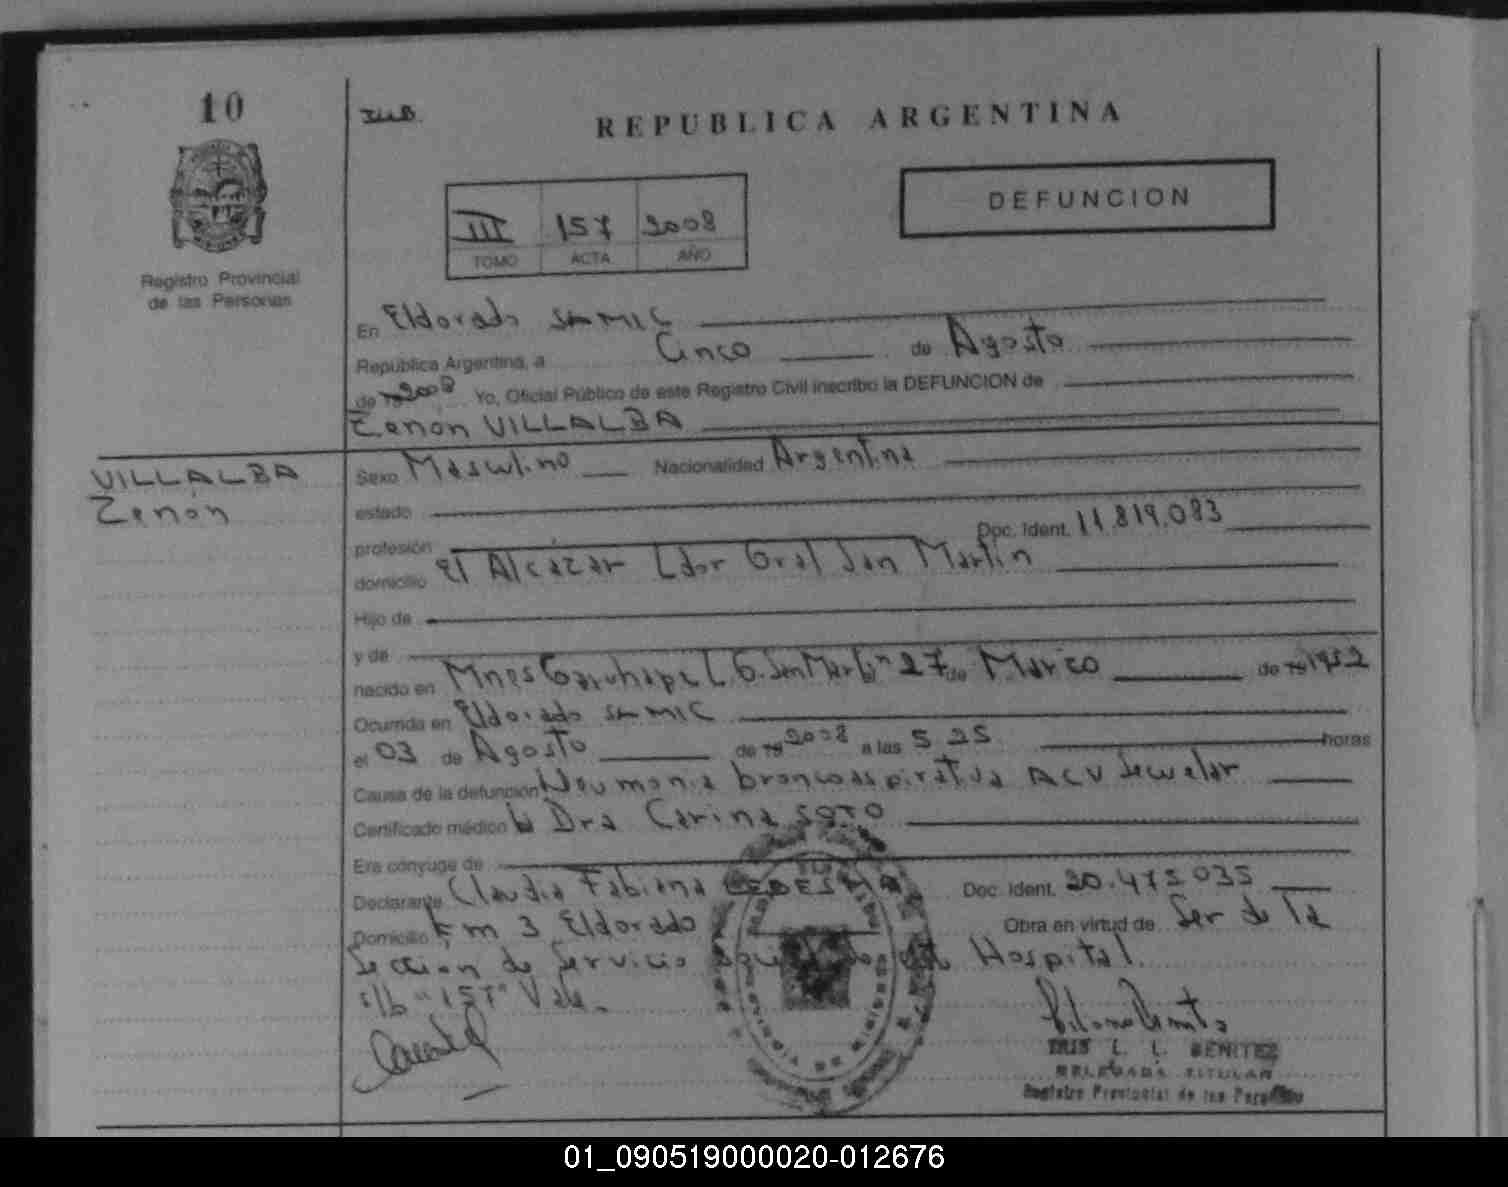 10
REPUBLICA ARGENTINA
DEFUNCION
III 157 2008
TOMO ACTA AÑO
Registro Provincial
de las Personas
En Eldorado SAMIC
República Argentina, a Cinco de Agosto
de 19 2008 Yo, Oficial Público de este Registro Civil inscribo la DEFUNCION de
Zenon VILLALBA
VILLALBA
Zenón
Sexo Masculino Nacionalidad Argentina
estado
Doc. Ident. 11.819.083
profesión
domicilio El Alcazar Ldor Gral San Martin
Hijo de
y de
nacido en Mnes Garuhape L. G. San Martin 27 de Marzo de 19 1952
Ocurrida en Eldorado SAMIC
el 03 de Agosto de 19 2008 a las 5 25 horas
Causa de la defunción Neumonia broncoaspirativa ACV Secuelar
Certificado médico Dra Carina SOTO
Era cónyuge de
Declarante Claudia Fabiana LEDESMA Doc. Ident. 20.475.035
Domicilio Km 3 Eldorado Obra en virtud de Ser de la
Seccion de Servicio del Hospital.
"157" Vale.
IRIS L. L. BENITEZ
DELEGADA TITULAR
Registro Provincial de las Personas
01_090519000020-012676